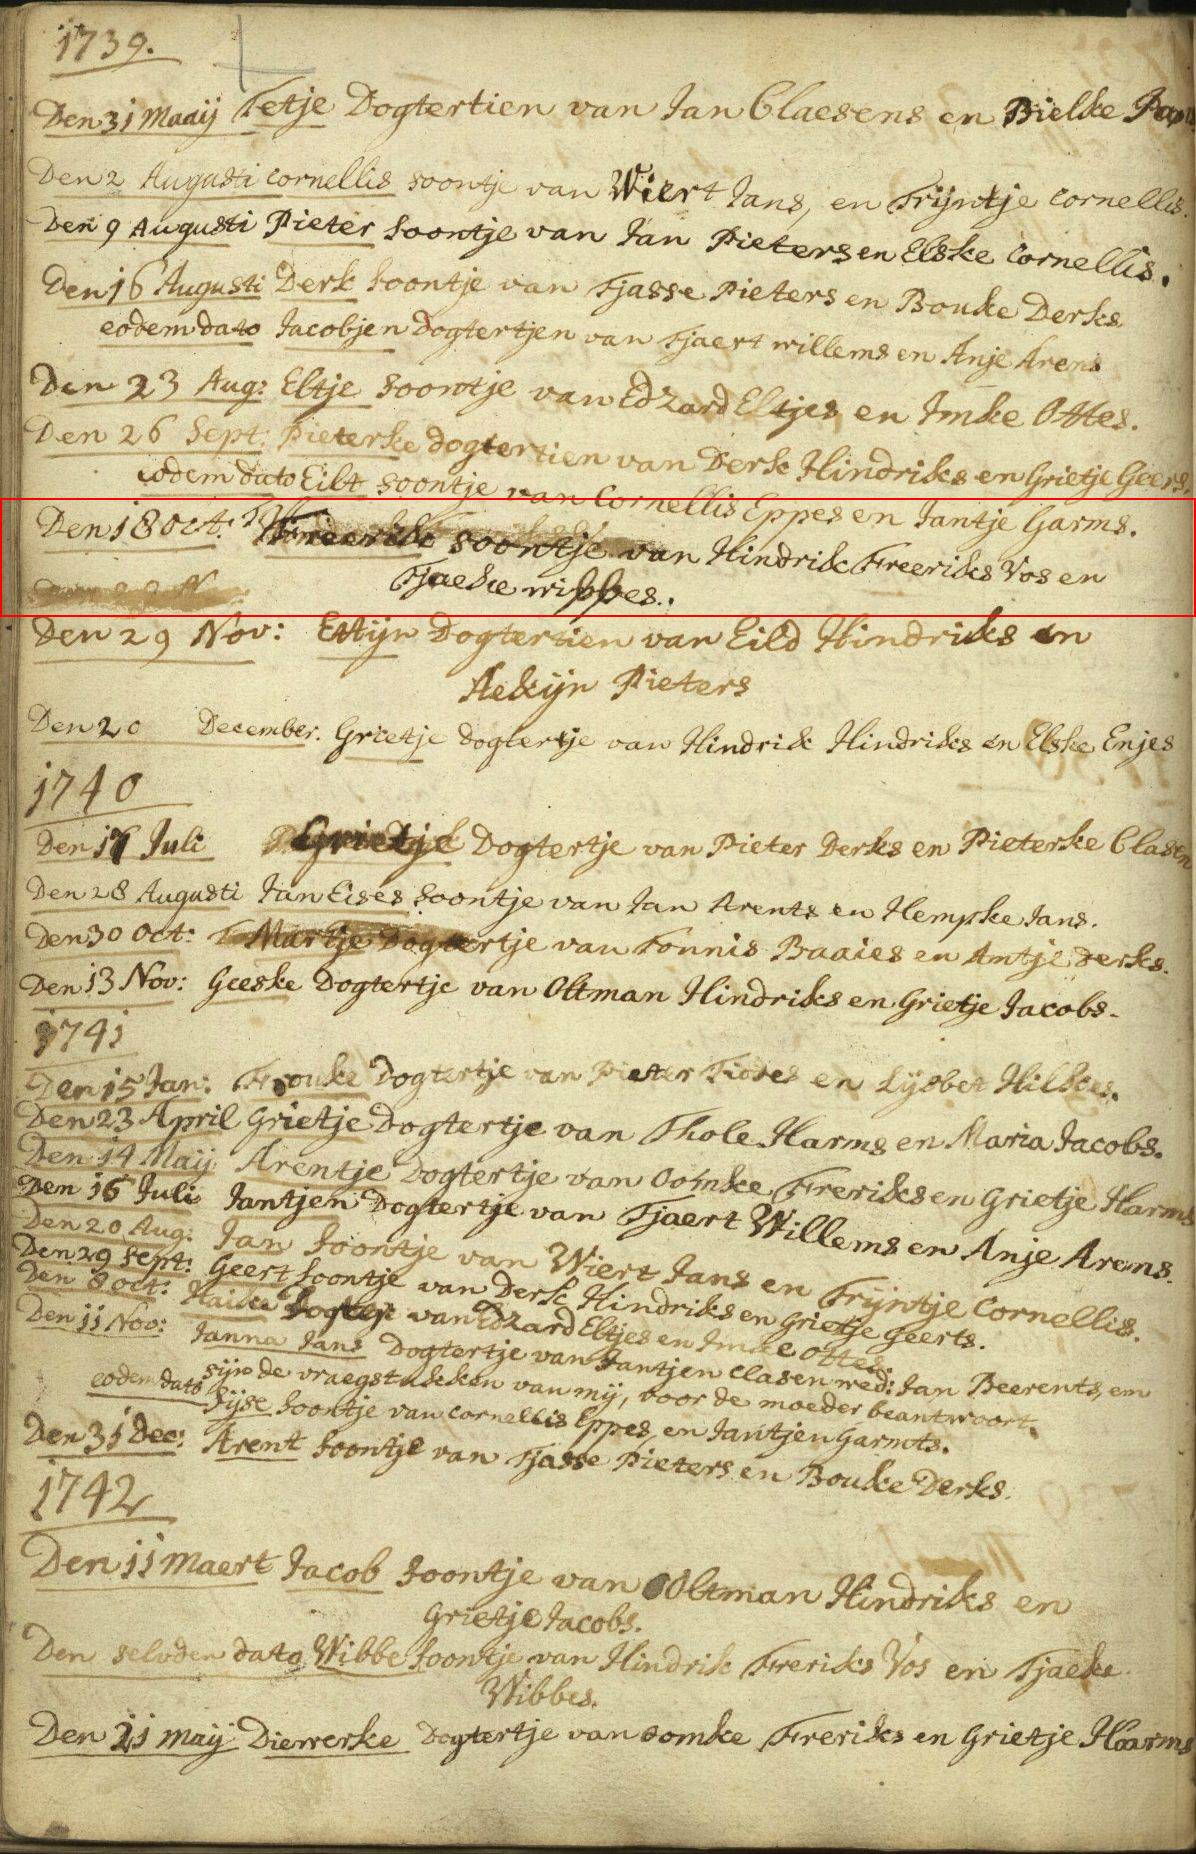 1739.
Den 31 Maaij Fetje Dogtertien van Jan Claesens en Bielke
Den 2 Augusti Cornellis soontje van Wiert Jans, en Trijntje Cornellis.
Den 9 Augusti Pieter Soontje van Jan Pieters en Elske Cornellis.
Den 16 Augusti Derk Soontje van Tjasse Pieters en Bouke Derks
eodem dato Jacobjen Dogtertjen van Tjaert willems en Anje Arens
Den 23 Aug: Eltje Soontje van Edzard Eltjes en Imke Ottes.
Den 26 Sept: Pieterke dogtertien van Derk Hindriks en Grietje Geers.
eodem dato Eilt soontje van Cornellis Eppes en Jantje Garms.
Den 18 Oct: Freerik soontje van Hindrik Freeriks Vos en
Tjaeke wibbes.
Den 29 Nov: Ettijn Dogtertien van Eild Hindriks en
Aekijn Pieters
Den 20 December. Grietje dogtertje van Hindrik Hindriks en Elske Enjes
1740
Den 17 Juli Grietje Dogtertje van Pieter Derks en Pieterke Clasen
Den 28 Augusti Jan Eises Soontje van Jan Arents en Hempke Jans.
Den 30 Oct: Martje Dogtertje van Tonnis Baaies en Antje Derks.
Den 13 Nov: Geeske Dogtertje van Oltman Hindriks en Grietje Jacobs.
1741
Den 15 Jan: Frouke Dogtertje van Pieter en Lijsbet
Den 23 April Grietje Dogtertje van Thole Harms en Maria Jacobs.
Den 14 Maij Arentje Dogtertje van Oomke Freriks en Grietje Harms
Den 16 Juli Jantjen Dogtertje van Tjaert Willems en Anje Arens.
Den 20 Aug: Jan Soontje van Wiert Jans en Trijntje Cornellis.
Den 29 Sept: Geert Soontje van Derk Hindriks en Grietje Geerts.
Den 8 Oct: Dogter van Edzard Eltjes en Imke Ottes.
Den 11 Nov: Janna Jans Dogtertje van Jantjen Clasen wed: Jan Beerents, en
sijn de vraegstukken van mij, voor de moeder beantwoort.
eodem dato Sijse Soontje van Cornellis Eppes, en Jantjen Garmts.
Den 31 Dec: Arent Soontje van Tjasse Pieters en Bouke Derks.
1742
Den 11 Maert Jacob Soontje van Oltman Hindriks en
Grietje Jacobs.
Den selvden dato Wibbe Soontje van Hindrik Freriks Vos en Tjaeke
Wibbes.
Den 21 Maij Diewerke Dogtertje van Oomke Freriks en Grietje Haarms